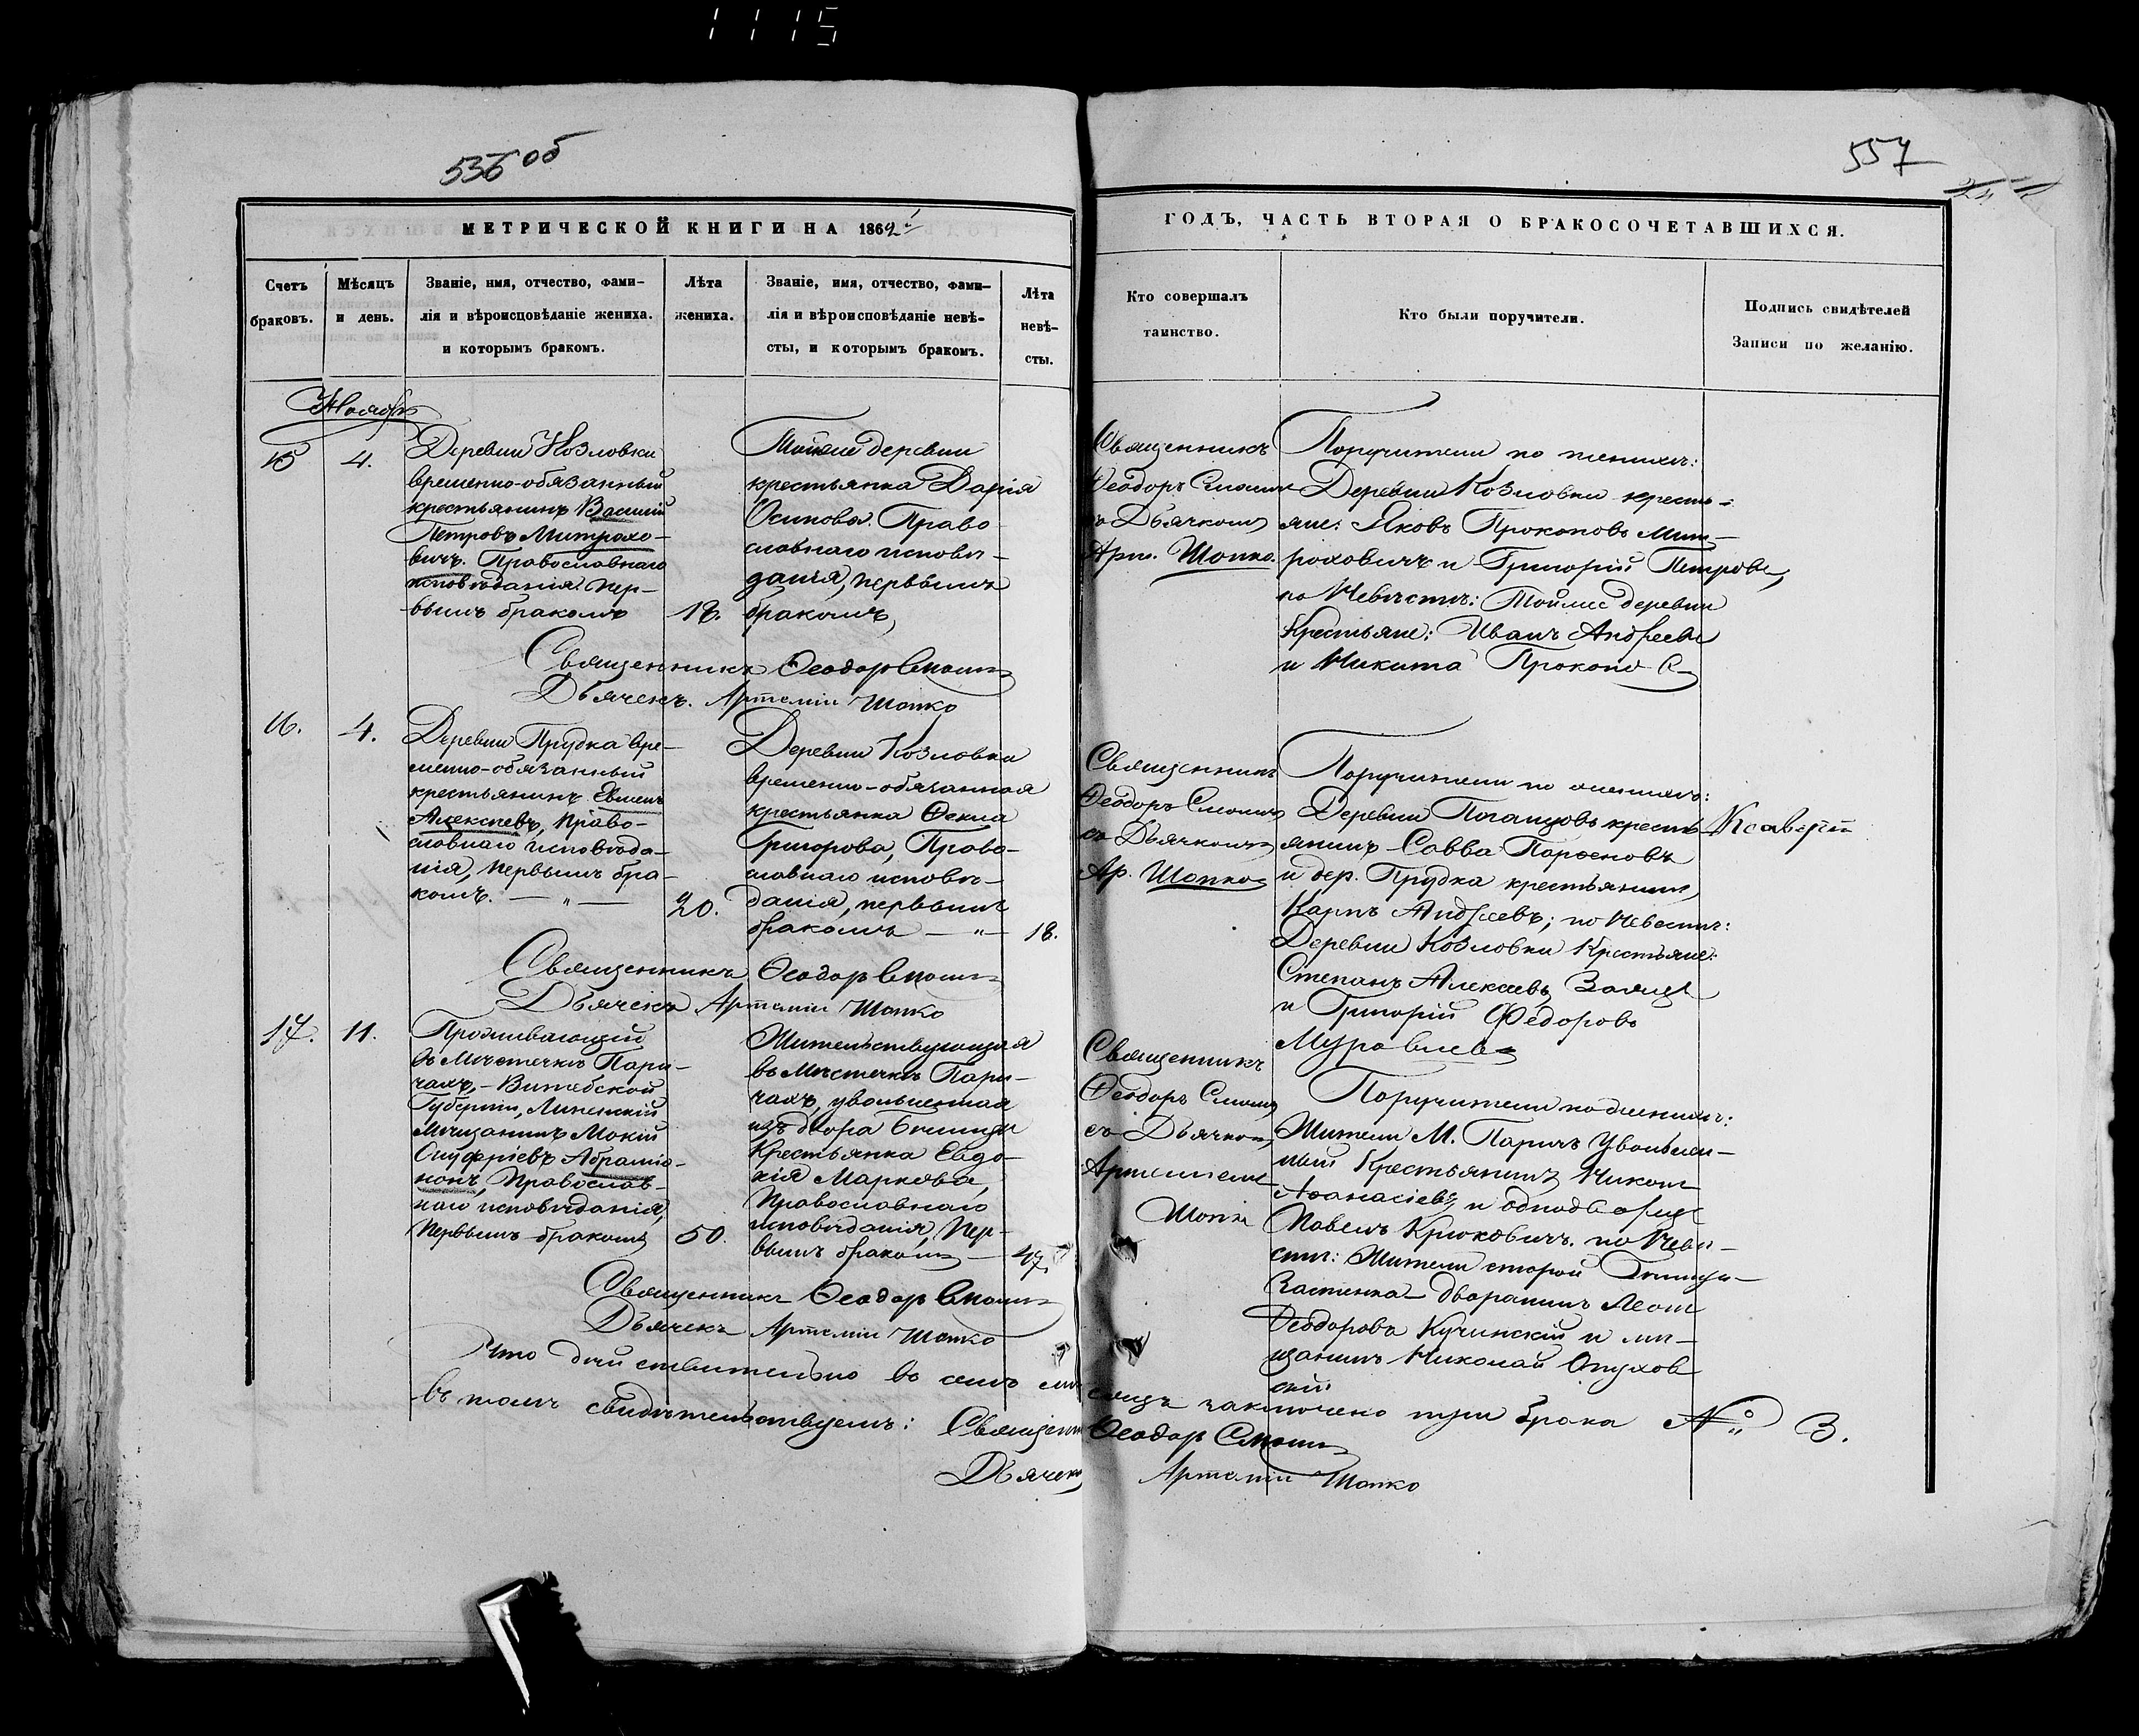 1115
556 об
557
МЕТРИЧЕСКОЙ КНИГИ НА 1862й
ГОДЪ, ЧАСТЬ ВТОРАЯ О БРАКОСОЧЕТАВШИХСЯ.
Счетъ
браковъ.
Мѣсяцъ
и день.
Званіе, имя, отчество, фами-
лія и вѣроисповѣданіе жениха.
и которымъ бракомъ.
Лѣта
жениха.
Званіе, имя, отчество, фами-
лія и вѣроисповѣданіе невѣ-
сты, и которымъ бракомъ.
Лѣта
невѣ-
сты.
Кто совершалъ
таинство.
Кто были поручители.
Подпись свидѣтелей
Записи по желанію.
Ноябрь
15
4.
Деревни Козловки
временно-обязанный
крестьянинъ Василій
Петровъ Митрохо-
вичъ. Православнаго
исповѣданія, пер-
вымъ бракомъ
18.
Тойже деревни
крестьянка Дарія
Осипова. Право-
славнаго исповѣ-
данія, первымъ
бракомъ,
Священникъ
Феодоръ
съ Дьячкомъ
Арт. Шопко.
Поручители по женихѣ:
Деревни Козловки кресть-
яне: Яковъ Прокоповъ Мит-
роховичъ и Григорій Петровъ,
по Невѣстѣ: Тойже деревни
Крестьяне: Иванъ Андреевъ
и Никита Прокопов
Священникъ Феодоръ
Дьячекъ Артемій Шопко
16.
4.
Деревни Прудка вре-
менно-обязанный
крестьянинъ
Алексѣевъ, Право-
славнаго исповѣда-
нія, первымъ бра-
комъ. — „ —
20.
Деревни Козловки
временно-обязанная
крестьянка Фекла
Григорова, Право-
славнаго исповѣ-
данія, первымъ
бракомъ — „ —
18.
Священникъ
Феодоръ
съ Дьячкомъ
Ар. Шопко
Поручители по женихѣ:
Деревни крестъ-
янинъ Савва Парфеновъ
и дер. Прудка крестьянинъ
Карпъ Андреевъ; по Невѣстѣ:
Деревни Козловки Крестьяне:
Степанъ Алексѣевъ Заяцъ
и Григорій Федоровъ
Муравьевъ
Священникъ Феодоръ
Дьячекъ Артемій Шопко
17.
11.
Проживающій
въ Мѣстечкѣ Пари-
чахъ, - Витебской
Губерніи,
Мѣщанинъ Мокій
Онуфріевъ
Православ-
наго исповѣданія,
первымъ бракомъ
50.
Жительствующая
въ Мѣстечкѣ Пари-
чахъ, уволенная
изъ двора
Крестьянка Евдо-
кія Маркова,
Православнаго
исповѣданія, пер-
вымъ бракомъ —
47.
Священникъ
Феодоръ
съ Дьячком
Артеміем
Шопко
Поручители по женихѣ:
Жители М. Паричъ Уволен-
ный Крестьянинъ
Афанасіевъ и однодворецъ
Павелъ Крюковичъ. по Невѣ-
стѣ: Жители старой
Застенка дворянинъ
Феодоровъ Кучинскій и мѣ-
щанинъ Николай
скій
Священникъ Феодоръ
Дьячекъ Артемій Шопко
Что дѣйствительно въ семъ мѣ-
сяцѣ заключено три брака № 3.
въ томъ свидѣтельствуемъ: Священ
Феодоръ
Дьячекъ Артемій Шопко